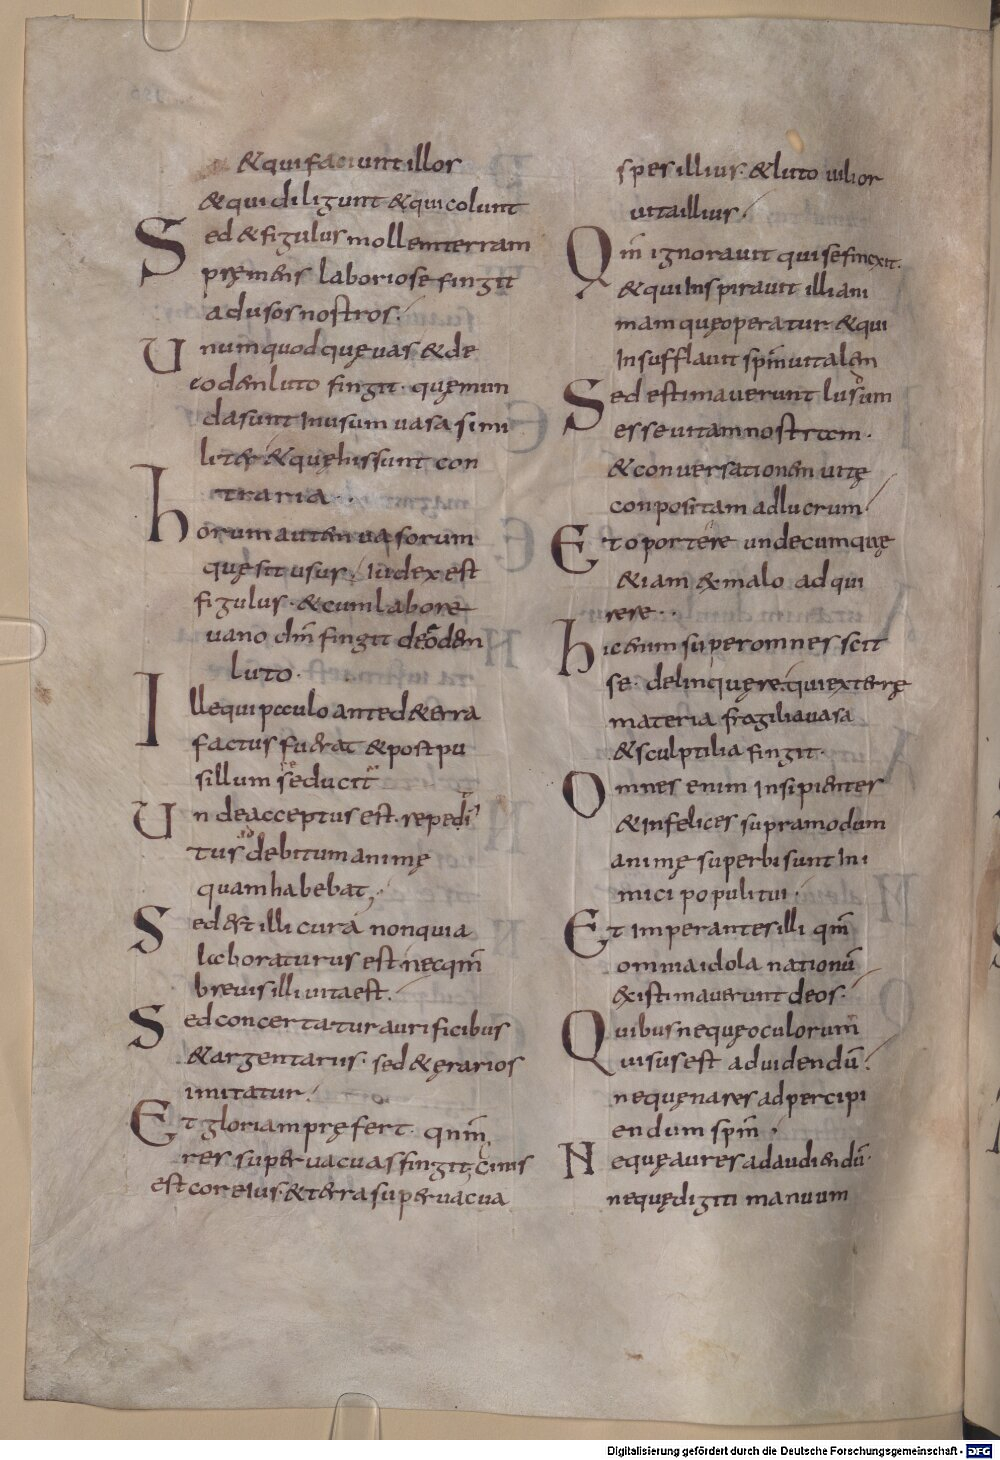 & qui faciunt illos
& qui diligunt & qui colunt
Sed & figulus mollem terram
pręmens laboriose fingit
ad usos nostros.
Unumquodquę uas & de
eodem luto fingit. quę mun
da sunt In usum uasa simi
liter & quę his sunt con
traria.
horum autem uasorum
quę sit usus, Iudex est
figulus. & cum labore
uano dm̄ fingit de eodem
luto.
Ille qui paulo ante de terra
factus fuerat & post pu
sillum se ducit
Unde acceptus est. repeti
tus debitum animę
quam habebat,
Sed est illi cura non quia
laboraturus est nec qm̄
breuis illi uita est.
Sed concertatur aurificibus
& argentariis. sed & ęrarios
imitatur.
Et gloriam pręfert. qnm̄
res superuacuas fingit, cinis
est cor eius. & terra superuacua
spes illius. & luto uilior
uita illius.
Qm̄ ignorauit qui se finxit.
& qui Inspirauit illi ani
mam quę operatur & qui
Insufflauit spm̄ uitalem
Sed estimauerunt lusum
esse uitam nostram.
& conuersationem uitę
conpositam ad lucrum
Et oportere undecumquę
&iam ex malo adqui
rere.
hic enim super omnes scit
se delinquęre. qui ex terrę
materia fragilia uasa
& sculptilia fingit.
Omnes enim Insipientes
& Infelices supra modum
animę superbi sunt Ini
mici populi tui.
Et Imperantes illi qm̄
omnia idola nationū
existimauerunt deos.
Quibus nequę oculorum
uisus est ad uidendū.
nequę nares ad percipi
endum spm̄.
Nequę aures ad audiendū.
nequę digiti manuum
Digitalisierung gefördert durch die Deutsche Forschungsgemeinschaft - DFG